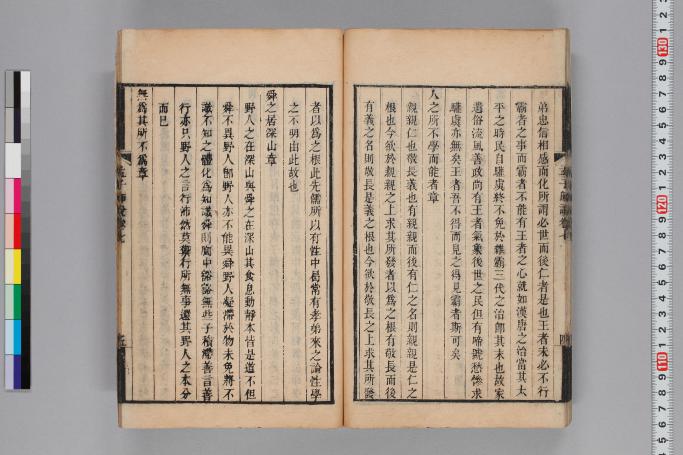 弟忠信相感而化所謂必世而後仁者是也王者未必不行
霸者之事而霸者不能有王者之心就如漢唐之治當其太
平之時民自驩虞終不免於雜霸三代之治即其末也故家
遺俗流風善政尚有王者氣象後世之民但有啼號愁慘求
驩虞亦無矣王者吾不得而見之得見霸者斯可矣
人之所不學而能者章
親親仁也敬長義也有親親而後有仁之名則親親是仁之
根也今欲於親親之上求其所發者以為之根有敬長而後
有義之名則敬長是義之根也今欲於敬長之上求其所發
者以為之根此先儒所以有性中曷常有孝弟來之論性學
之不明由此故也
舜之居深山章
野人之在深山與舜之在深山其食息動靜本皆是道不但
舜不異野人即野人亦不能異舜野人凝滯於物未免將不
識不知之體化為知識舜則胸中谿谿無些子積滯善言善
行亦只野人之言行沛然莫禦行所無事還其野人之本分
而已
無為其所不為章
孟子師說卷七
四
五